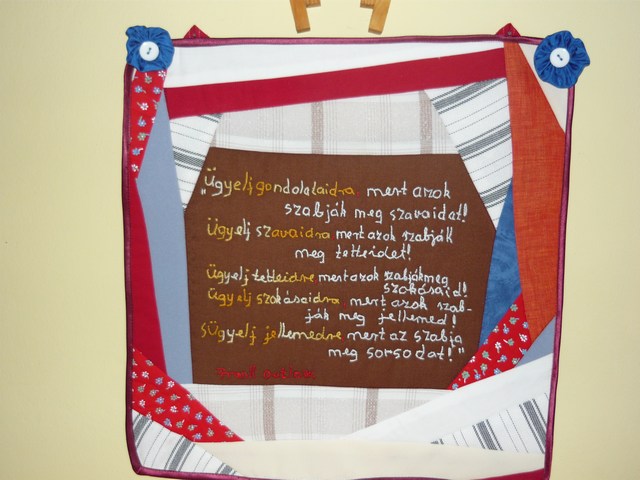 "Ügyelj gondolataidra mert azok
szabják meg szavaidat!
Ügyelj szavaidra mert azok szabják
meg tetteidet!
Ügyelj tetteidre mert azok szabják meg
szokásaid!
Ügyelj szokásaidra mert azok szab-
ják meg jellemed!
SÜgyelj jellemedre mert az szabja
meg sorsodat!"